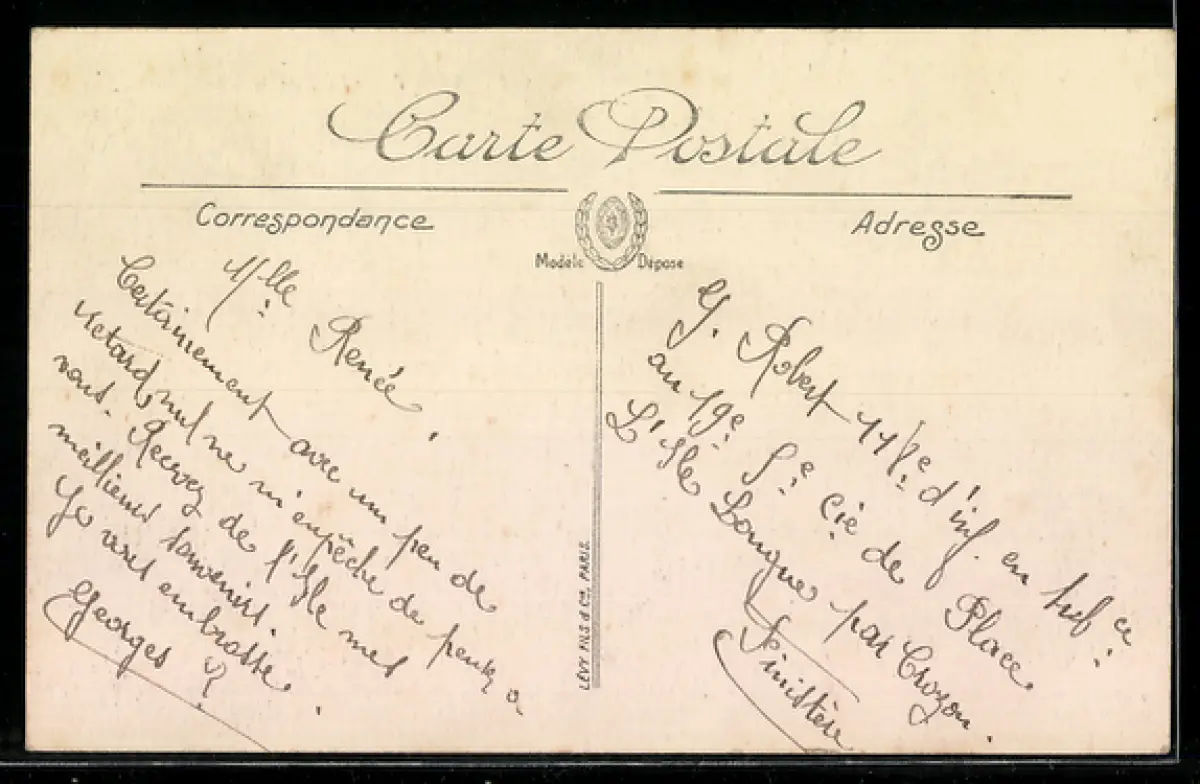 Carte Postale
Correspondance
Adresse
Modèle Déposé
Mlle Renée,
Certainement avec un peu de
retard, nul ne m'enpêche de penser a
vous. Recevez de l'Isle mes
meillieurs souvenirs.
Je vous embrasse.
Georges R
G. Robert 118e d'inf. en sub ce
au 19e Se Cie de Place
L'Isle Longue par Crozon.
Finistère
LÉVY FILS & Cie, PARIS.